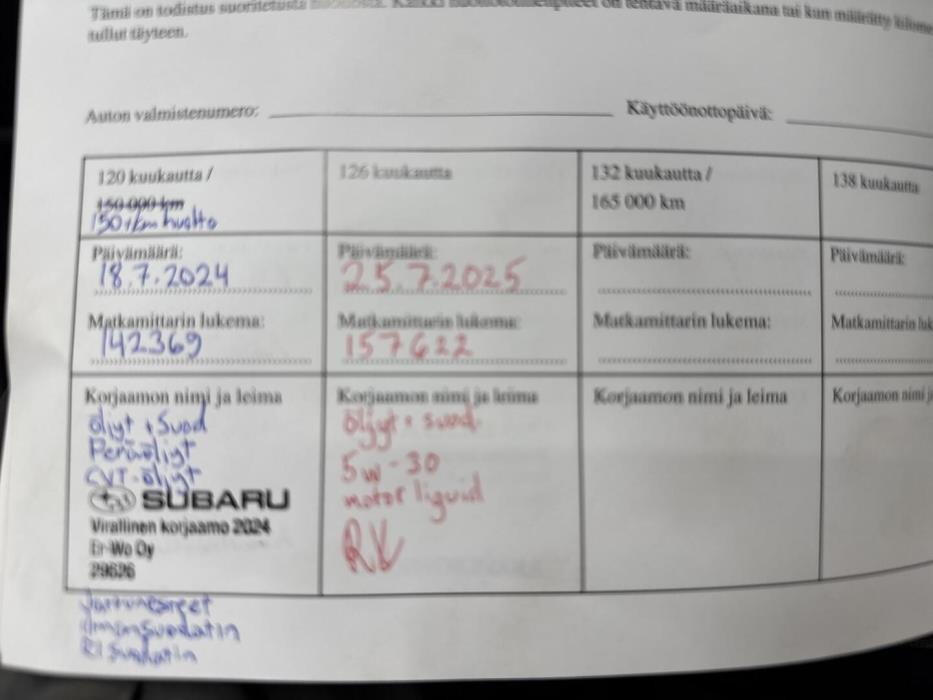 Tämä on todistus suoritetusta huollosta. Kaikki huoltotoimenpiteet on tehtävä määräaikana tai kun määrätty
tullut täyteen.
Auton valmistenumero:
Käyttöönottopäivä:
120 kuukautta /
150 000 km
150 tkm huolto
126 kuukautta
132 kuukautta /
165 000 km
138 kuukautta
Päivämäärä:
18.7.2024
Päivämäärä:
25.7.2025
Päivämäärä:
Päivämäärä:
Matkamittarin lukema:
142369
Matkamittarin lukema:
157622
Matkamittarin lukema:
Matkamittarin luk
Korjaamon nimi ja leima
öljyt + Suod
Peräöljyt
CVT-öljyt
SUBARU
Virallinen korjaamo 2024
Er-Wo Oy
29626
Korjaamon nimi ja leima
öljyt + suod.
5w-30
motor liquid
RV
Korjaamon nimi ja leima
Korjaamon nimi j
Jarrunesteet
ilmansuodatin
RI suodatin